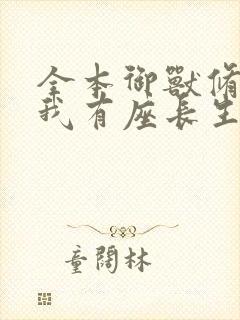 全本御獸脩
我有座長生
童闊林